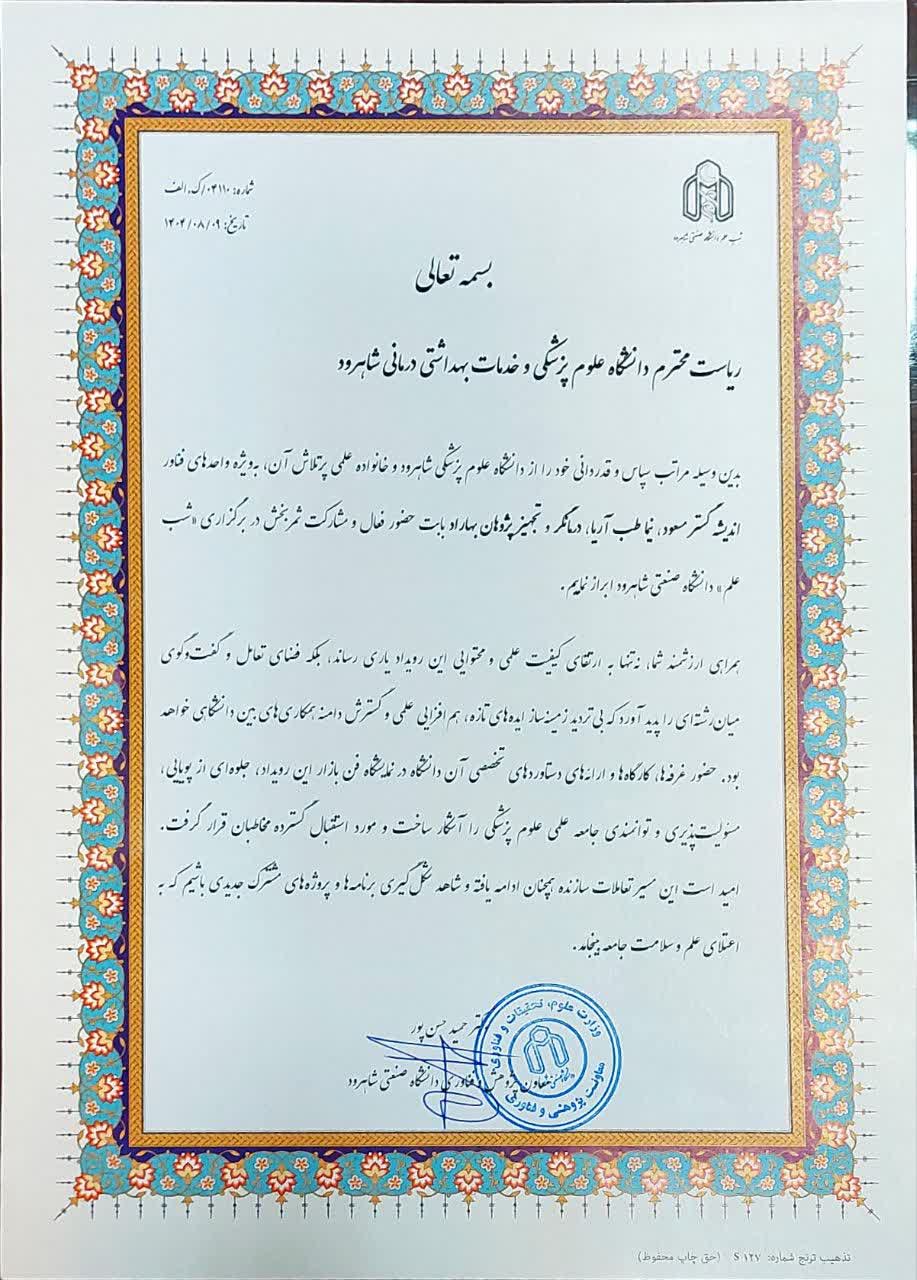 شماره: ۰۴۱۱۰/ک.الف
تاریخ: ۱۴۰۴/۰۸/۰۹
شب علم دانشگاه صنعتی شاهرود
بسمه تعالی
ریاست محترم دانشگاه علوم پزشکی و خدمات بهداشتی درمانی شاهرود
بدین وسیله مراتب سپاس و قدردانی خود را از دانشگاه علوم پزشکی شاهرود و خانواده علمی پرتلاش آن، به‌ویژه واحدهای فناور
اندیشه گستر مسعود، نیما طب آریا، درمانگر و تجهیز پژوهان بهاراد بابت حضور فعال و مشارکت ثمربخش در برگزاری «شب
علم» دانشگاه صنعتی شاهرود ابراز نماییم.
همراهی ارزشمند شما، نه‌تنها به ارتقای کیفیت علمی و محتوایی این رویداد یاری رساند، بلکه فضای تعامل و گفت‌وگوی
میان‌رشته‌ای را پدید آورد که بی‌تردید زمینه‌ساز ایده‌های تازه، هم‌افزایی علمی و گسترش دامنه همکاری‌های بین دانشگاهی خواهد
بود. حضور غرفه‌ها، کارگاه‌ها و ارائه‌های دستاوردهای تخصصی آن دانشگاه در نمایشگاه فن بازار این رویداد، جلوه‌ای از پویایی،
مسئولیت‌پذیری و توانمندی جامعه علمی علوم پزشکی را آشکار ساخت و مورد استقبال گسترده مخاطبان قرار گرفت.
امید است این مسیر تعاملات سازنده همچنان ادامه یافته و شاهد شکل‌گیری برنامه‌ها و پروژه‌های مشترک جدیدی باشیم که به
اعتلای علم و سلامت جامعه بینجامد.
حمید حسن پور
معاون پژوهش و فناوری دانشگاه صنعتی شاهرود
وزارت علوم، تحقیقات و فناوری
معاونت پژوهشی و فناوری
تذهیب ترنج شماره: S ۱۲۷ (حق چاپ محفوظ)